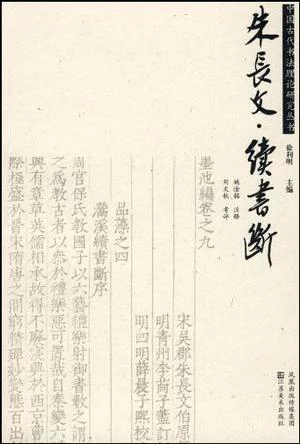 中国古代书法理论研究丛书
朱長文·續書斷
徐利明 主编
姚淦铭 注释
考评
宋吳郡朱長文伯原
明青州李
明四明薛晨子熙校
墨池編卷之九
品藻之四
溪續書斷序
周官保氏教國子以六藝禮樂射御書數之謂
之為教古者以參於禮樂惡可置哉自秦變六
興有章草英儒相承故得不廢寖興於西京
際極盛於晉宋隋唐之間窮精殫妙變態百出
凤凰出版传媒集团
江苏美术出版社